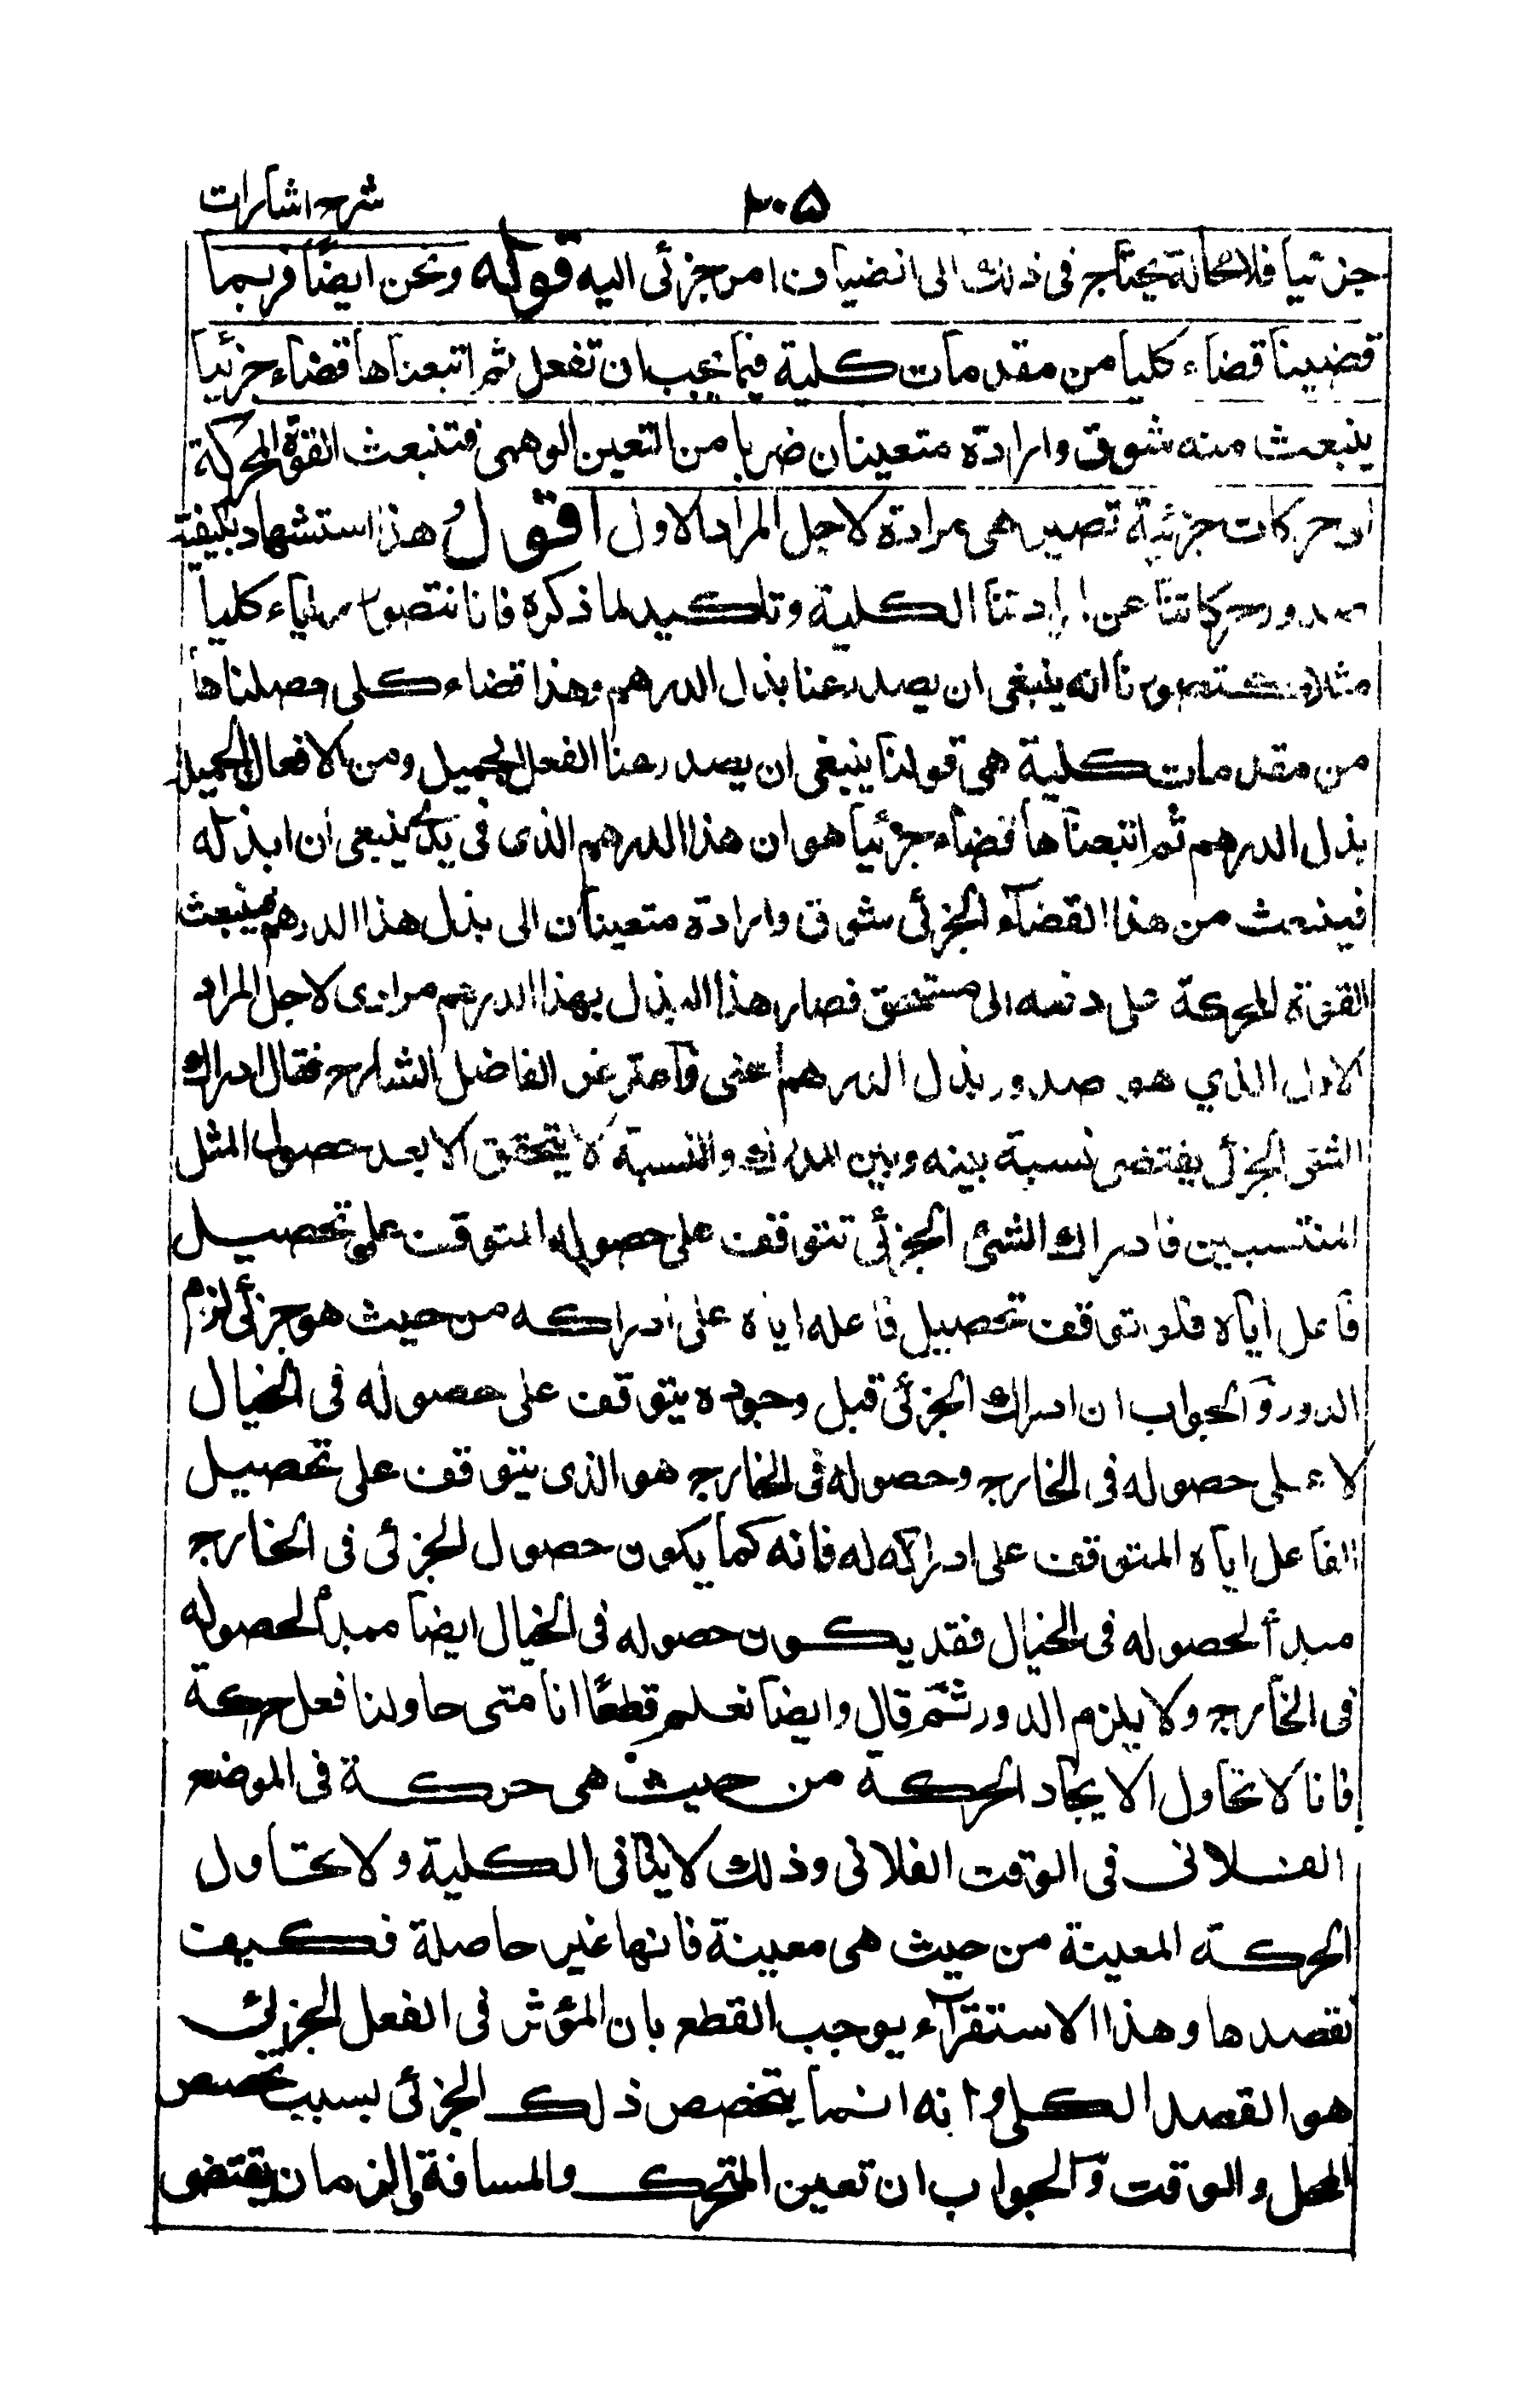 شرح اشارات
٣٠٥
جزئيا فلا محالة يحتاج في ذلك الى انضياف امر جزئى اليه قوله ونحن ايضًا فربما
قضينا قضاء كليا من مقدمات كلية فيما يجب ان تفعل ثم اتبعناها قضاء جزئيا
ينبعث منه شوق وارادة متعينان ضربا من التعين الوهمى فتنبعث القوة المحركة
الى حركات جزئية تصير هى مرادة لاجل المراد الاول اقول هذا استشهاد بكيفية
صدور حركاتنا عن ارادتنا الكلية وتاكيد لما ذكره فانا نتصور رايا كليا
مثلا كتصورنا انه ينبغى ان يصدر عنا بذل الدرهم وهذا قضاء كلى حصلناها
من مقدمات كلية هى قولنا ينبغى ان يصدر عنا الفعل الجميل ومن الافعال الجميلة
بذل الدرهم ثم اتبعناها قضاء جزئيا هو ان هذا الدرهم الذى فى يدى ينبغى ان ابذله
فينبعث من هذا القضاء الجزئى شوق وارادة متعينان الى بذل هذا الدرهم فينبعث
القوة المحركة على دفعه الى مستحق فصار هذا البذل بهذا الدرهم مرادى لاجل المراد
الاول الذي هو صدور بذل الدرهم اعنى واعترض الفاضل الشارح فقال ادراك
الشئ الجزئى يقتضى نسبة بينه وبين المدرك والنسبة لا يتحقق الا بعد حصول المثل
المنتسبين فادراك الشئ الجزئى تتوقف على حصوله المتوقف على تحصيل
فاعل اياه فلو توقف تحصيل فاعله اياه على ادراكه من حيث هو جزئى لزم
الدور والجواب ان ادراك الجزئى قبل وجوده يتوقف على حصوله فى الخيال
لا على حصوله فى الخارج وحصوله فى الخارج هو الذى يتوقف على تحصيل
الفاعل اياه المتوقف على ادراكه له فانه كما يكون حصول الجزئى فى الخارج
مبدأ لحصوله فى الخيال فقد يكون حصوله فى الخيال ايضا مبدأ لحصوله
فى الخارج ولا يلزم الدور ثم قال وايضا نعلم قطعًا انا متى حاولنا فعل حركة
فانا لا نحاول الا ايجاد الحركة من حيث هى حركة فى الموضع
الفلانى فى الوقت الفلانى وذلك لا ينافى الكلية ولا نحاول
الحركة المعينة من حيث هى معينة فانها غير حاصلة فكيف
نقصدها وهذا الاستقرآء يوجب القطع بان المؤثر فى الفعل الجزئى
هو القصد الكلى وانه انما يتخصص ذلك الجزئى بسبب تخصص
المحل والوقت والجواب ان تعين المتحرك والمسافة والزمان يقتضى